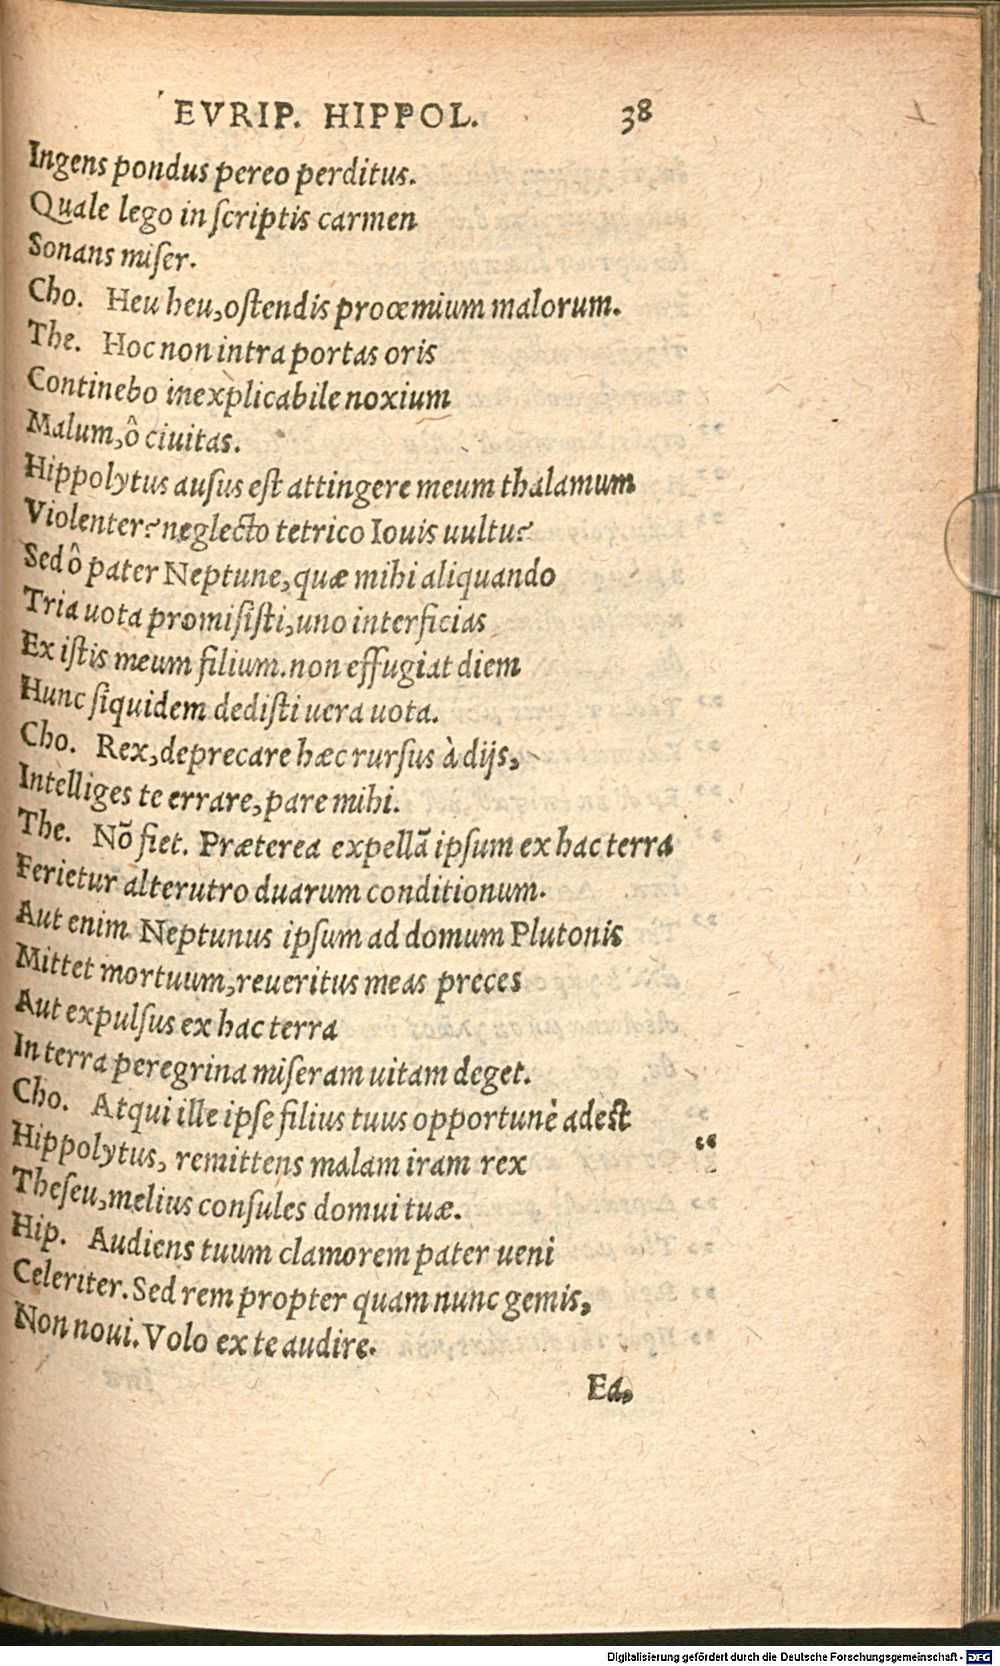 EVRIP. HIPPOL. 38
Ingens pondus pereo perditus.
Quale lego in scriptis carmen
Sonans miser.
Cho. Heu heu, ostendis procœmium malorum.
The. Hoc non intra portas oris
Continebo inexplicabile noxium
Malum, ô ciuitas.
Hippolytus ausus est attingere meum thalamum
Violenter? neglecto tetrico Iouis uultu?
Sed ô pater Neptune, quæ mihi aliquando
Tria uota promisisti, uno interficias
Ex istis meum filium. non effugiat diem
Hunc siquidem dedisti uera uota.
Cho. Rex, deprecare hæc rursus à dijs,
Intelliges te errare, pare mihi.
The. Nõ fiet. Præterea expellã ipsum ex hac terra
Ferietur alterutro duarum conditionum.
Aut enim Neptunus ipsum ad domum Plutonis
Mittet mortuum, reueritus meas preces
Aut expulsus ex hac terra
In terra peregrina miseram uitam deget.
Cho. Atqui ille ipse filius tuus opportunè adest
Hippolytus, remittens malam iram rex “
Theseu, melius consules domui tuæ.
Hip. Audiens tuum clamorem pater ueni
Celeriter. Sed rem propter quam nunc gemis,
Non noui. Volo ex te audire.
Ea,
Digitalisierung gefördert durch die Deutsche Forschungsgemeinschaft - DFG